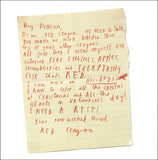 Hey Duncan,
It's me, RED Crayon. WE NEED to talk.
You make me work harder than
any of your other crayons.
All year long I wear myself out
coloring FIRE ENGINES, APPLES,
Strawberries and EVERYTHING
ELSE that's RED.
I even work on holidays!
I have to color all the SANTAS
at Christmas and ALL the
HEARTS on Valentine's Day!
I NEED A REST!
Your overworked friend,
RED Crayon